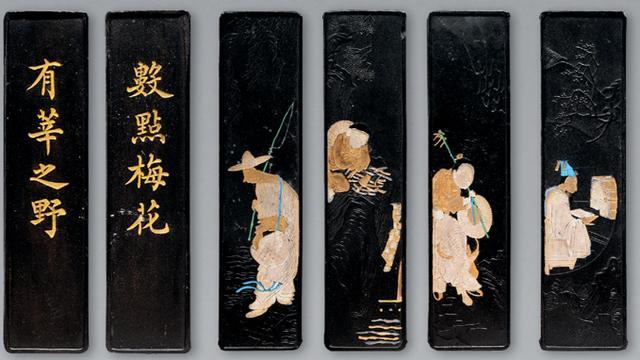 有莘之野
數點梅花